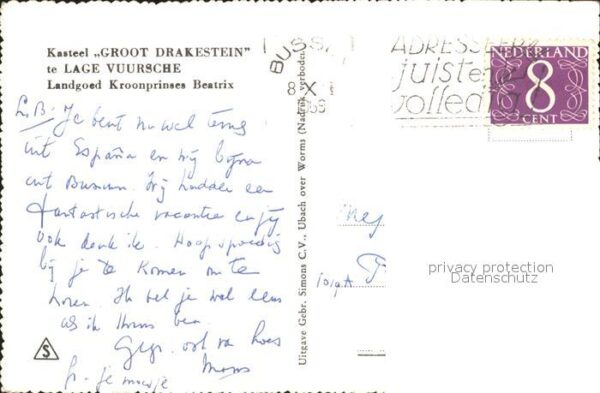 Kasteel „GROOT DRAKESTEIN”
te LAGE VUURSCHE
Landgoed Kroonprinses Beatrix
L.B. Je bent nu wel terug
uit España en wij bijna
uit Bussum. Wij hadden een
fantastische vacantie en jij
ook denk ik. Hoop spoedig
bij je te komen om te
horen. Ik bel je wel eens
als ik thuis ben.
ook
je
S
Uitgave Gebr. Simons C.V., Ubach over Worms (Nadruk verboden)
BUSS
8 X
ADRESSEER
juist en
volledig
NEDERLAND
8
CENT
Mej
privacy protection
Datenschutz